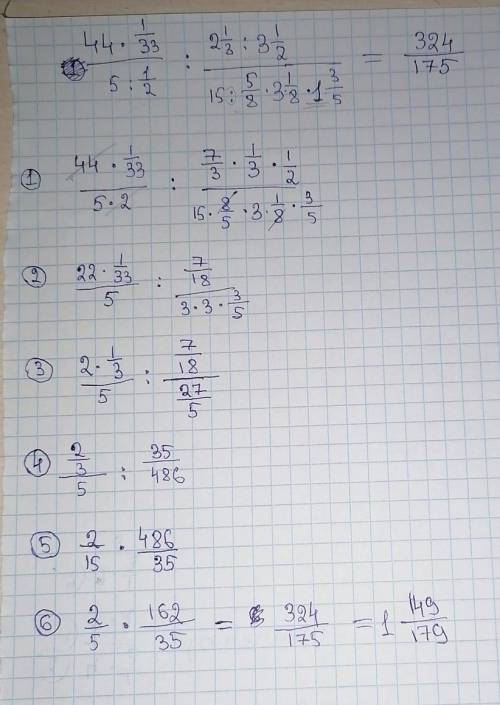 (44 · 1/33)/(5 : 1/2) : (2 1/3 : 3 1/2)/(15 : 5/8 · 3 1/8 · 1 3/5) = 324/175
① (44 · 1/33)/(5 · 2) : (7/3 · 1/3 · 1/2)/(15 · 8/5 · 3 · 1/8 · 3/5)
② (22 · 1/33)/5 : (7/18)/(3 · 3 · 3/5)
③ (2 · 1/3)/5 : (7/18)/(27/5)
④ (2/3)/5 : 35/486
⑤ 2/15 · 486/35
⑥ 2/5 · 162/35 = 324/175 = 1 149/179